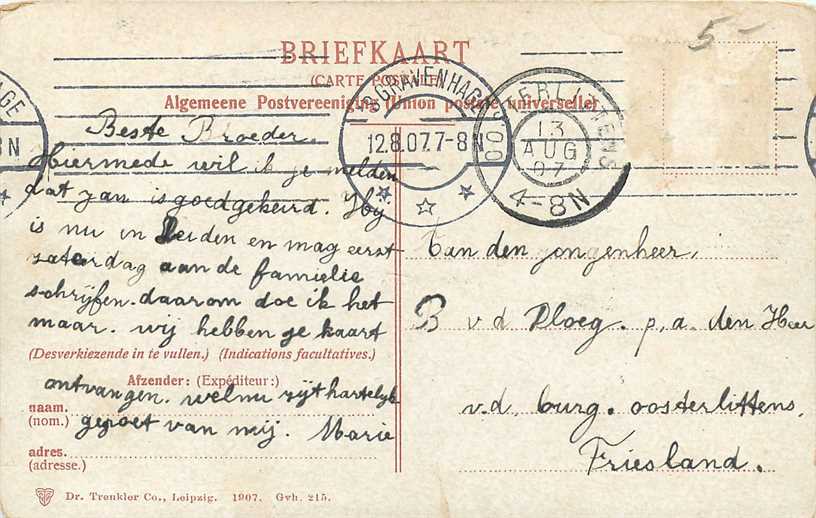 5-
BRIEFKAART
(CARTE POSTALE)
Algemeene Postvereeniging (Union postale universelle)
'S GRAVENHAGE
12.8.07.7-8N
OOSTERLITTENS
13
AUG
07
4-8N
AGE
8N
Beste Broeder
Hiermede wil ik je melden
dat Jan is goedgekeurd. Hij
is nu in Leiden en mag eerst
zaterdag aan de famielie
schrijfen. daarom doe ik het
maar. wij hebben je kaart
(Desverkiezende in te vullen.) (Indications facultatives.)
Afzender: (Expéditeur:)
ontvangen. welnu zijt hartelijk
naam.
(nom.)
gegroet van mij. Marie
adres.
(adresse.)
Dr. Trenkler Co., Leipzig. 1907. Gvh. 215.
Aan den jongenheer,
B v.d Ploeg. p,a. den Heer
v.d. burg. oosterlittens,
Friesland.